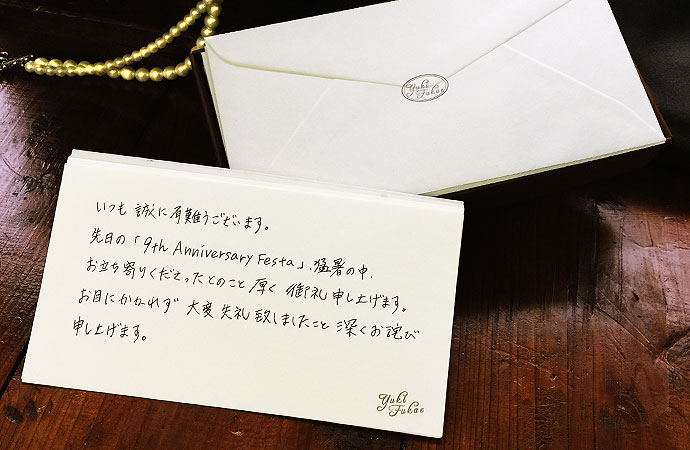 Yuki
Fukae
いつも 誠に有難うございます。
先日の「9th Anniversary Festa」、猛暑の中、
お立ち寄りくださったとのこと 厚く 御礼 申し上げます。
お目にかかれず 大変 失礼 致しましたこと 深くお詫び
申し上げます。
Yuki
Fukae